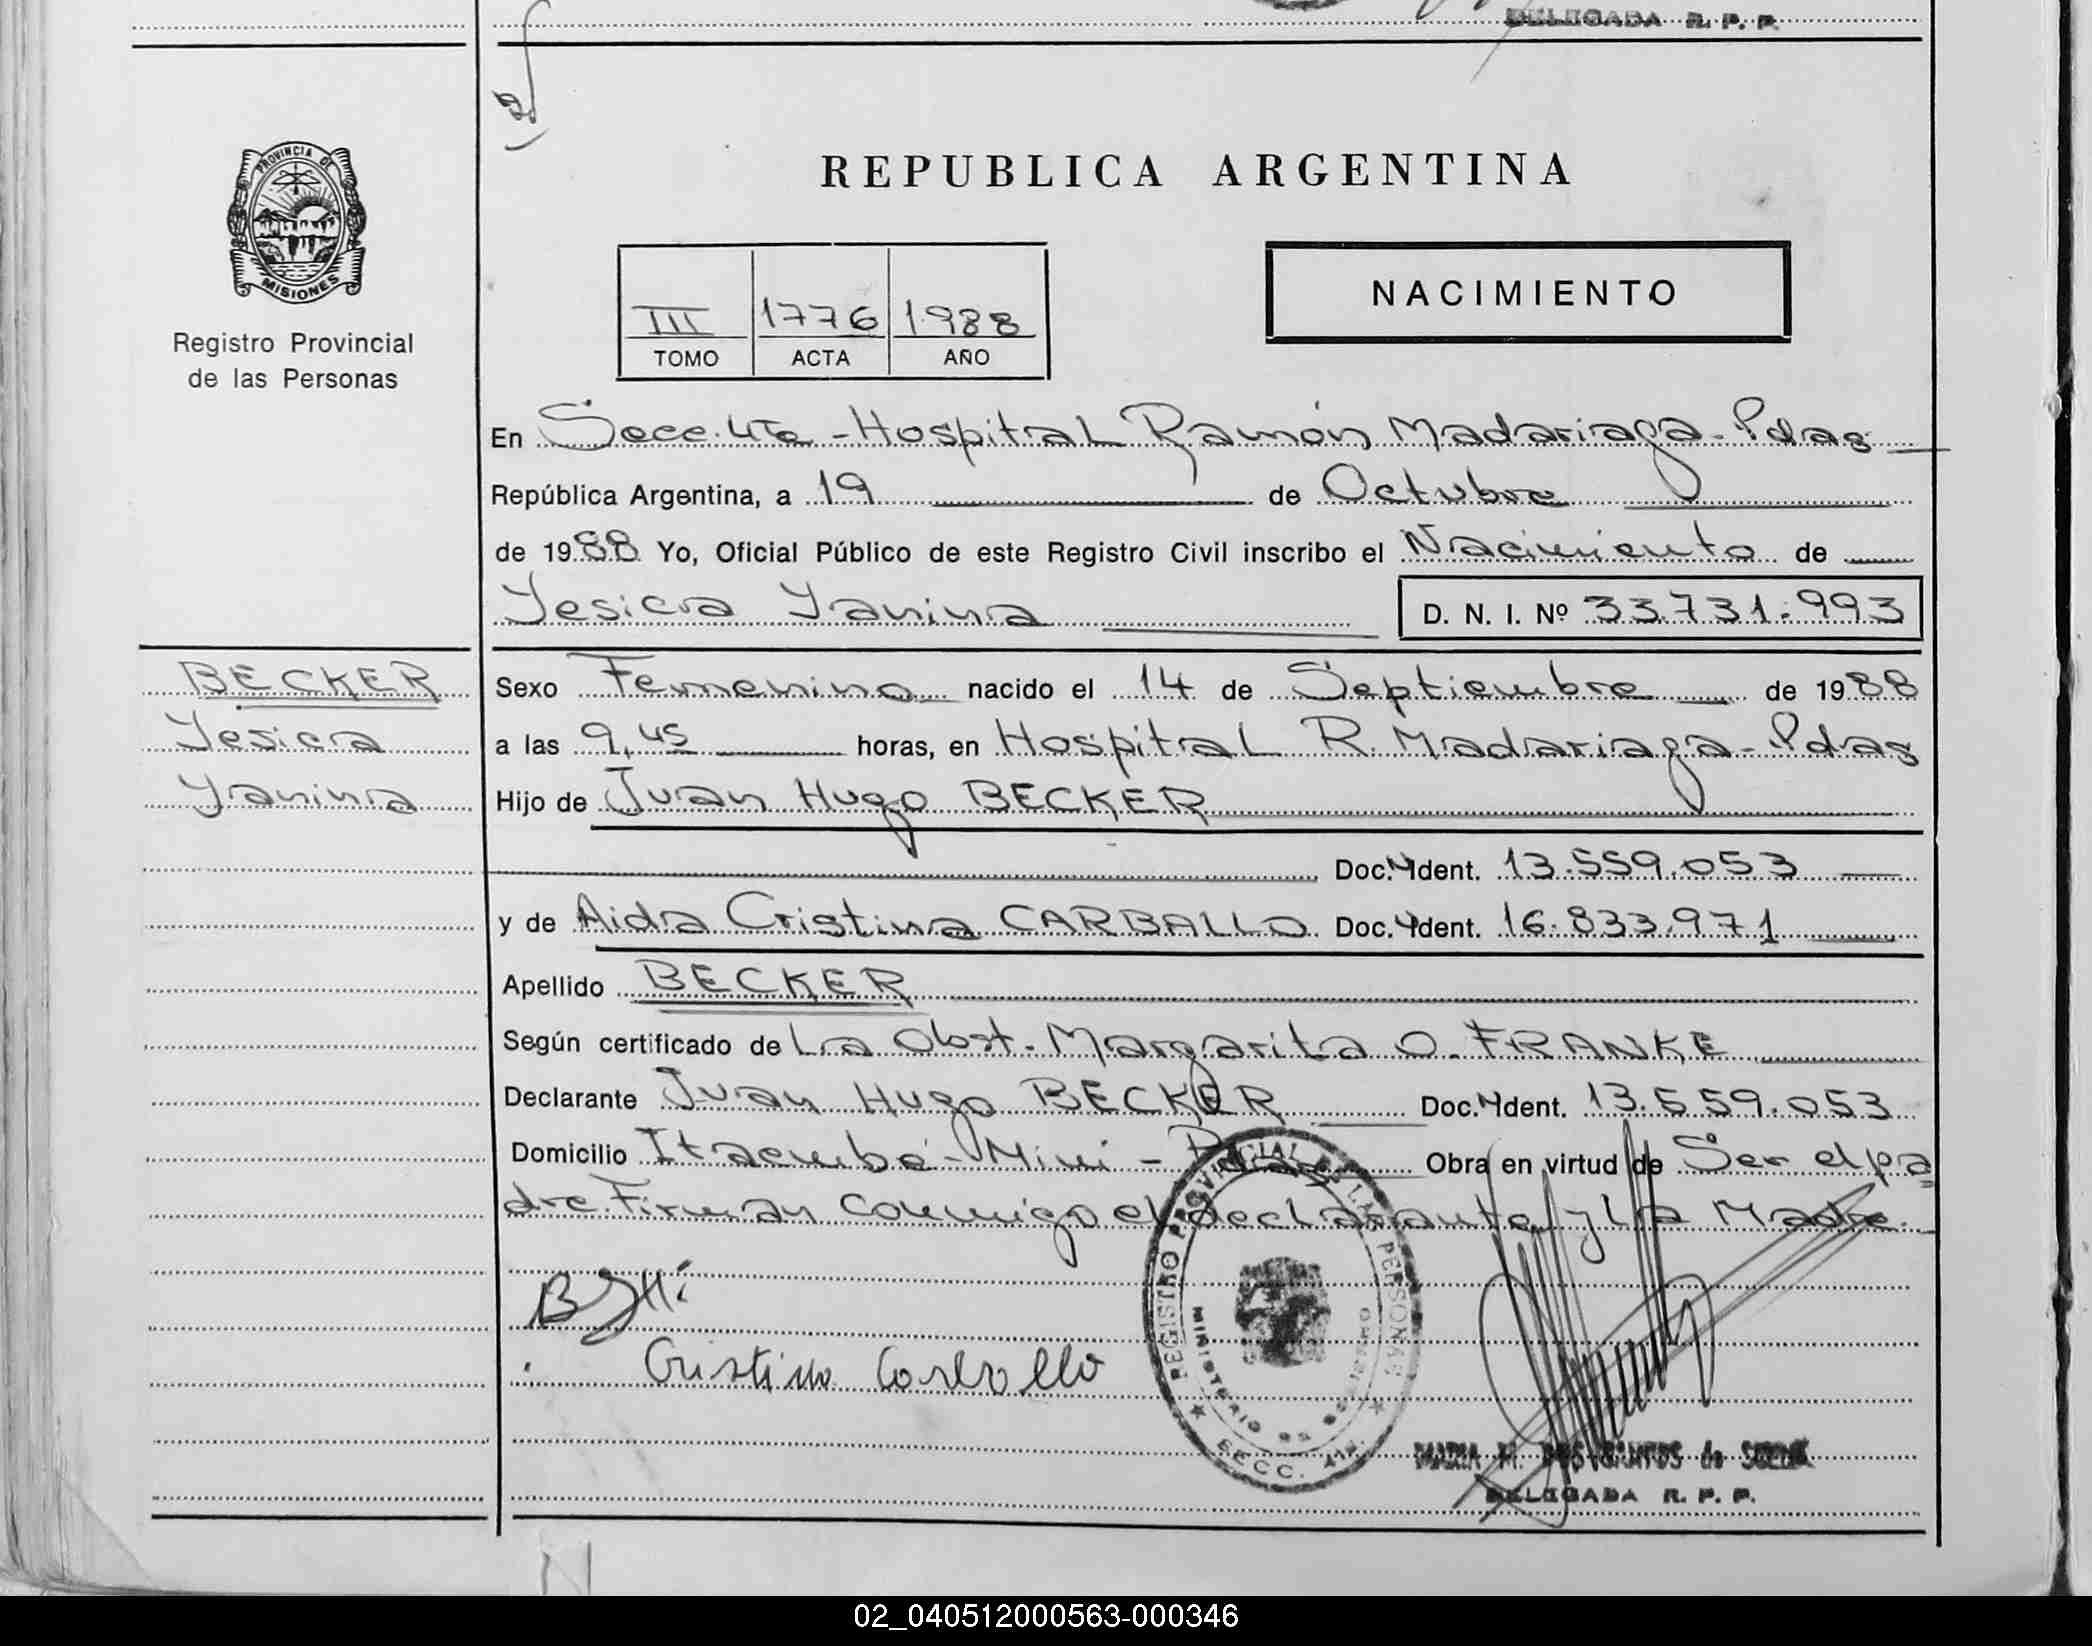 DELEGADA R. P. P.
PROVINCIA DE
MISIONES
Registro Provincial
de las Personas
REPUBLICA ARGENTINA
III 1776 1988
TOMO ACTA AÑO
NACIMIENTO
En Secc. 4ta - Hospital Ramón Madariaga - Pdas
República Argentina, a 19 de Octubre
de 1988 Yo, Oficial Público de este Registro Civil inscribo el Nacimiento de
Yesica Yanina D. N. I. Nº 33.731.993
BECKER
Yesica
Yanina
Sexo Femenino nacido el 14 de Septiembre de 1988
a las 9,45 horas, en Hospital R. Madariaga - Pdas
Hijo de Juan Hugo BECKER
Doc. Ydent. 13.559.053
y de Aida Cristina CARBALLO Doc. Ydent. 16.833.971
Apellido BECKER
Según certificado de La Obst. Margarita O. FRANKE
Declarante Juan Hugo BECKER Doc. Ydent. 13.559.053
Domicilio Itaembé - Mini - Pdas Obra en virtud de Ser el pa
dre. Firman conmigo el declarante y La Madre.
Cristina Carballo
REGISTRO PROVINCIAL DE LAS PERSONAS
MINISTERIO DE GOBIERNO
SECC. 4ta.
DELEGADA R. P. P.
02_040512000563-000346